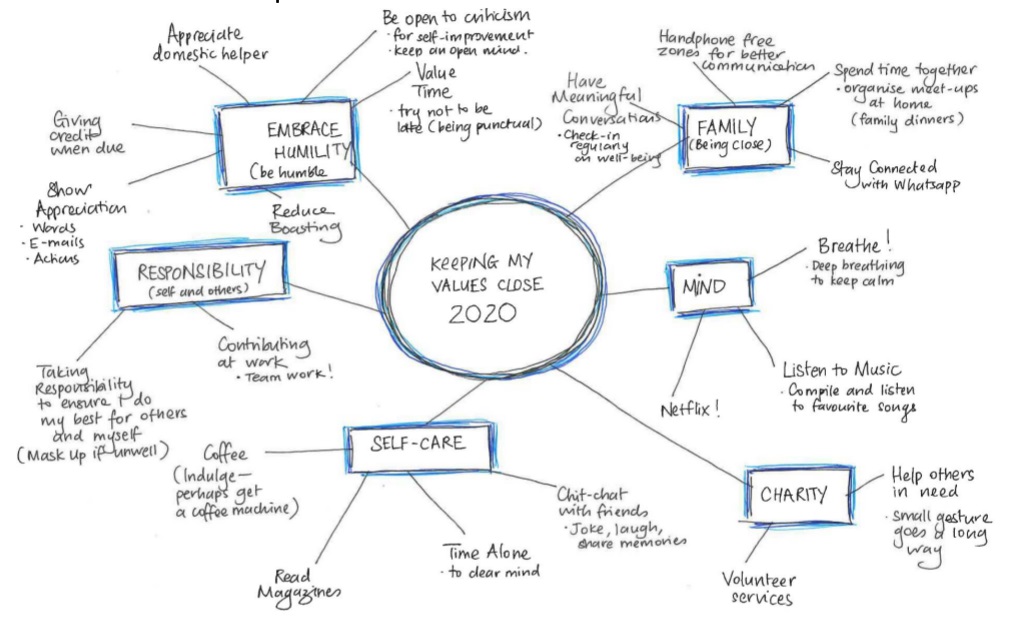 Appreciate
domestic helper
Be open to criticism
· for self-improvement
· keep an open mind.
Value
Time
· try not to be
late (being punctual)
Giving
credit
when due
Show
Appreciation
· Words
· E-mails
· Actions
EMBRACE
HUMILITY
(be humble
Reduce
Boasting
Handphone free
zones for better
communication
Have
Meaningful
Conversations
· Check-in
regularly
on well-being
FAMILY
(Being close)
Spend time together
· organise meet-ups
at home
(family dinners)
Stay Connected
with Whatsapp
RESPONSIBILITY
(self and others)
Contributing
at work
· Team work!
Taking
Responsibility
to ensure I do
my best for others
and myself
(Mask up if unwell)
KEEPING MY
VALUES CLOSE
2020
MIND
Breathe!
· Deep breathing
to keep calm
Listen to Music
· Compile and listen
to favourite songs
Netflix!
SELF-CARE
Coffee
(Indulge—
perhaps get
a coffee machine)
Read
Magazines
Time Alone
· to clear mind
Chit-chat
with friends
· Joke, laugh,
share memories
CHARITY
Help others
in need
· small gesture
goes a long
way
Volunteer
services